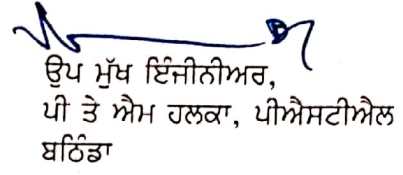 ਉਪ ਮੁੱਖ ਇੰਜੀਨੀਅਰ,
ਪੀ ਤੇ ਐਮ ਹਲਕਾ, ਪੀਐਸਟੀਐਲ
ਬਠਿੰਡਾ